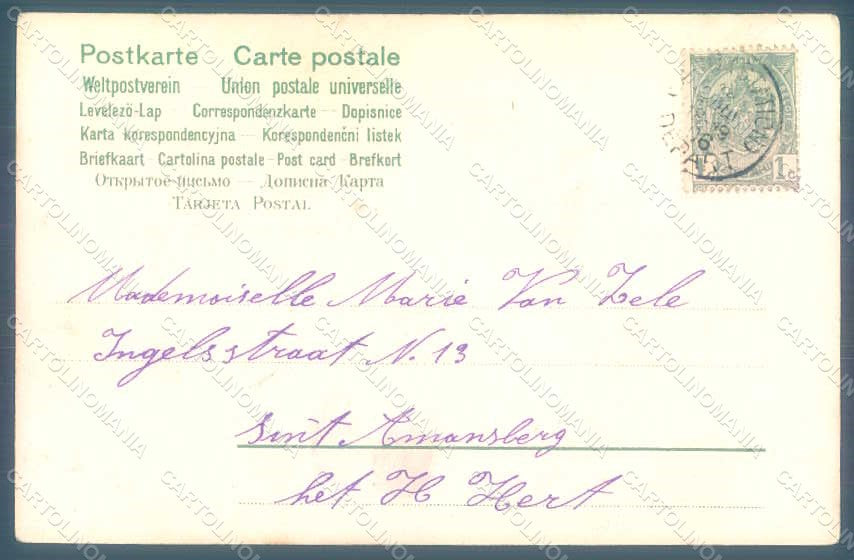 Postkarte Carte postale
Weltpostverein — Union postale universelle
Levelező-Lap — Correspondenzkarte — Dopisnice
Karta korespondencyjna — Korespondenční listek
Briefkaart — Cartolina postale — Post card — Brefkort
Открытое письмо — Дописна Карта
TARJETA POSTAL
DEPART
1c
Mademoiselle Marie Van Zele
Ingelsstraat N. 13
Sint Amansberg
het H Hert
CARTOLINOMANIA